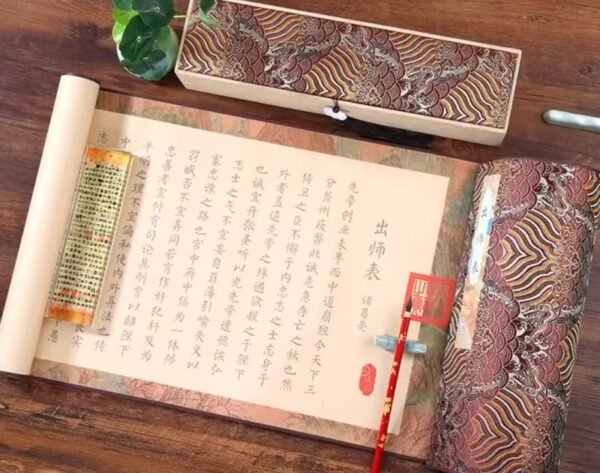 出师表
诸葛亮
先帝创业未半而中道崩殂今天下三
分益州疲弊此诚危急存亡之秋也然
侍卫之臣不懈于内忠志之士忘身于
外者盖追先帝之殊遇欲报之于陛下
也诚宜开张圣听以光先帝遗德恢弘
志士之气不宜妄自菲薄引喻失义以
塞忠谏之路也宫中府中俱为一体陟
罚臧否不宜异同若有作奸犯科及为
忠善者宜付有司论其刑赏以昭陛下
平明之理不宜偏私使内外异法也侍
中
志
出师表